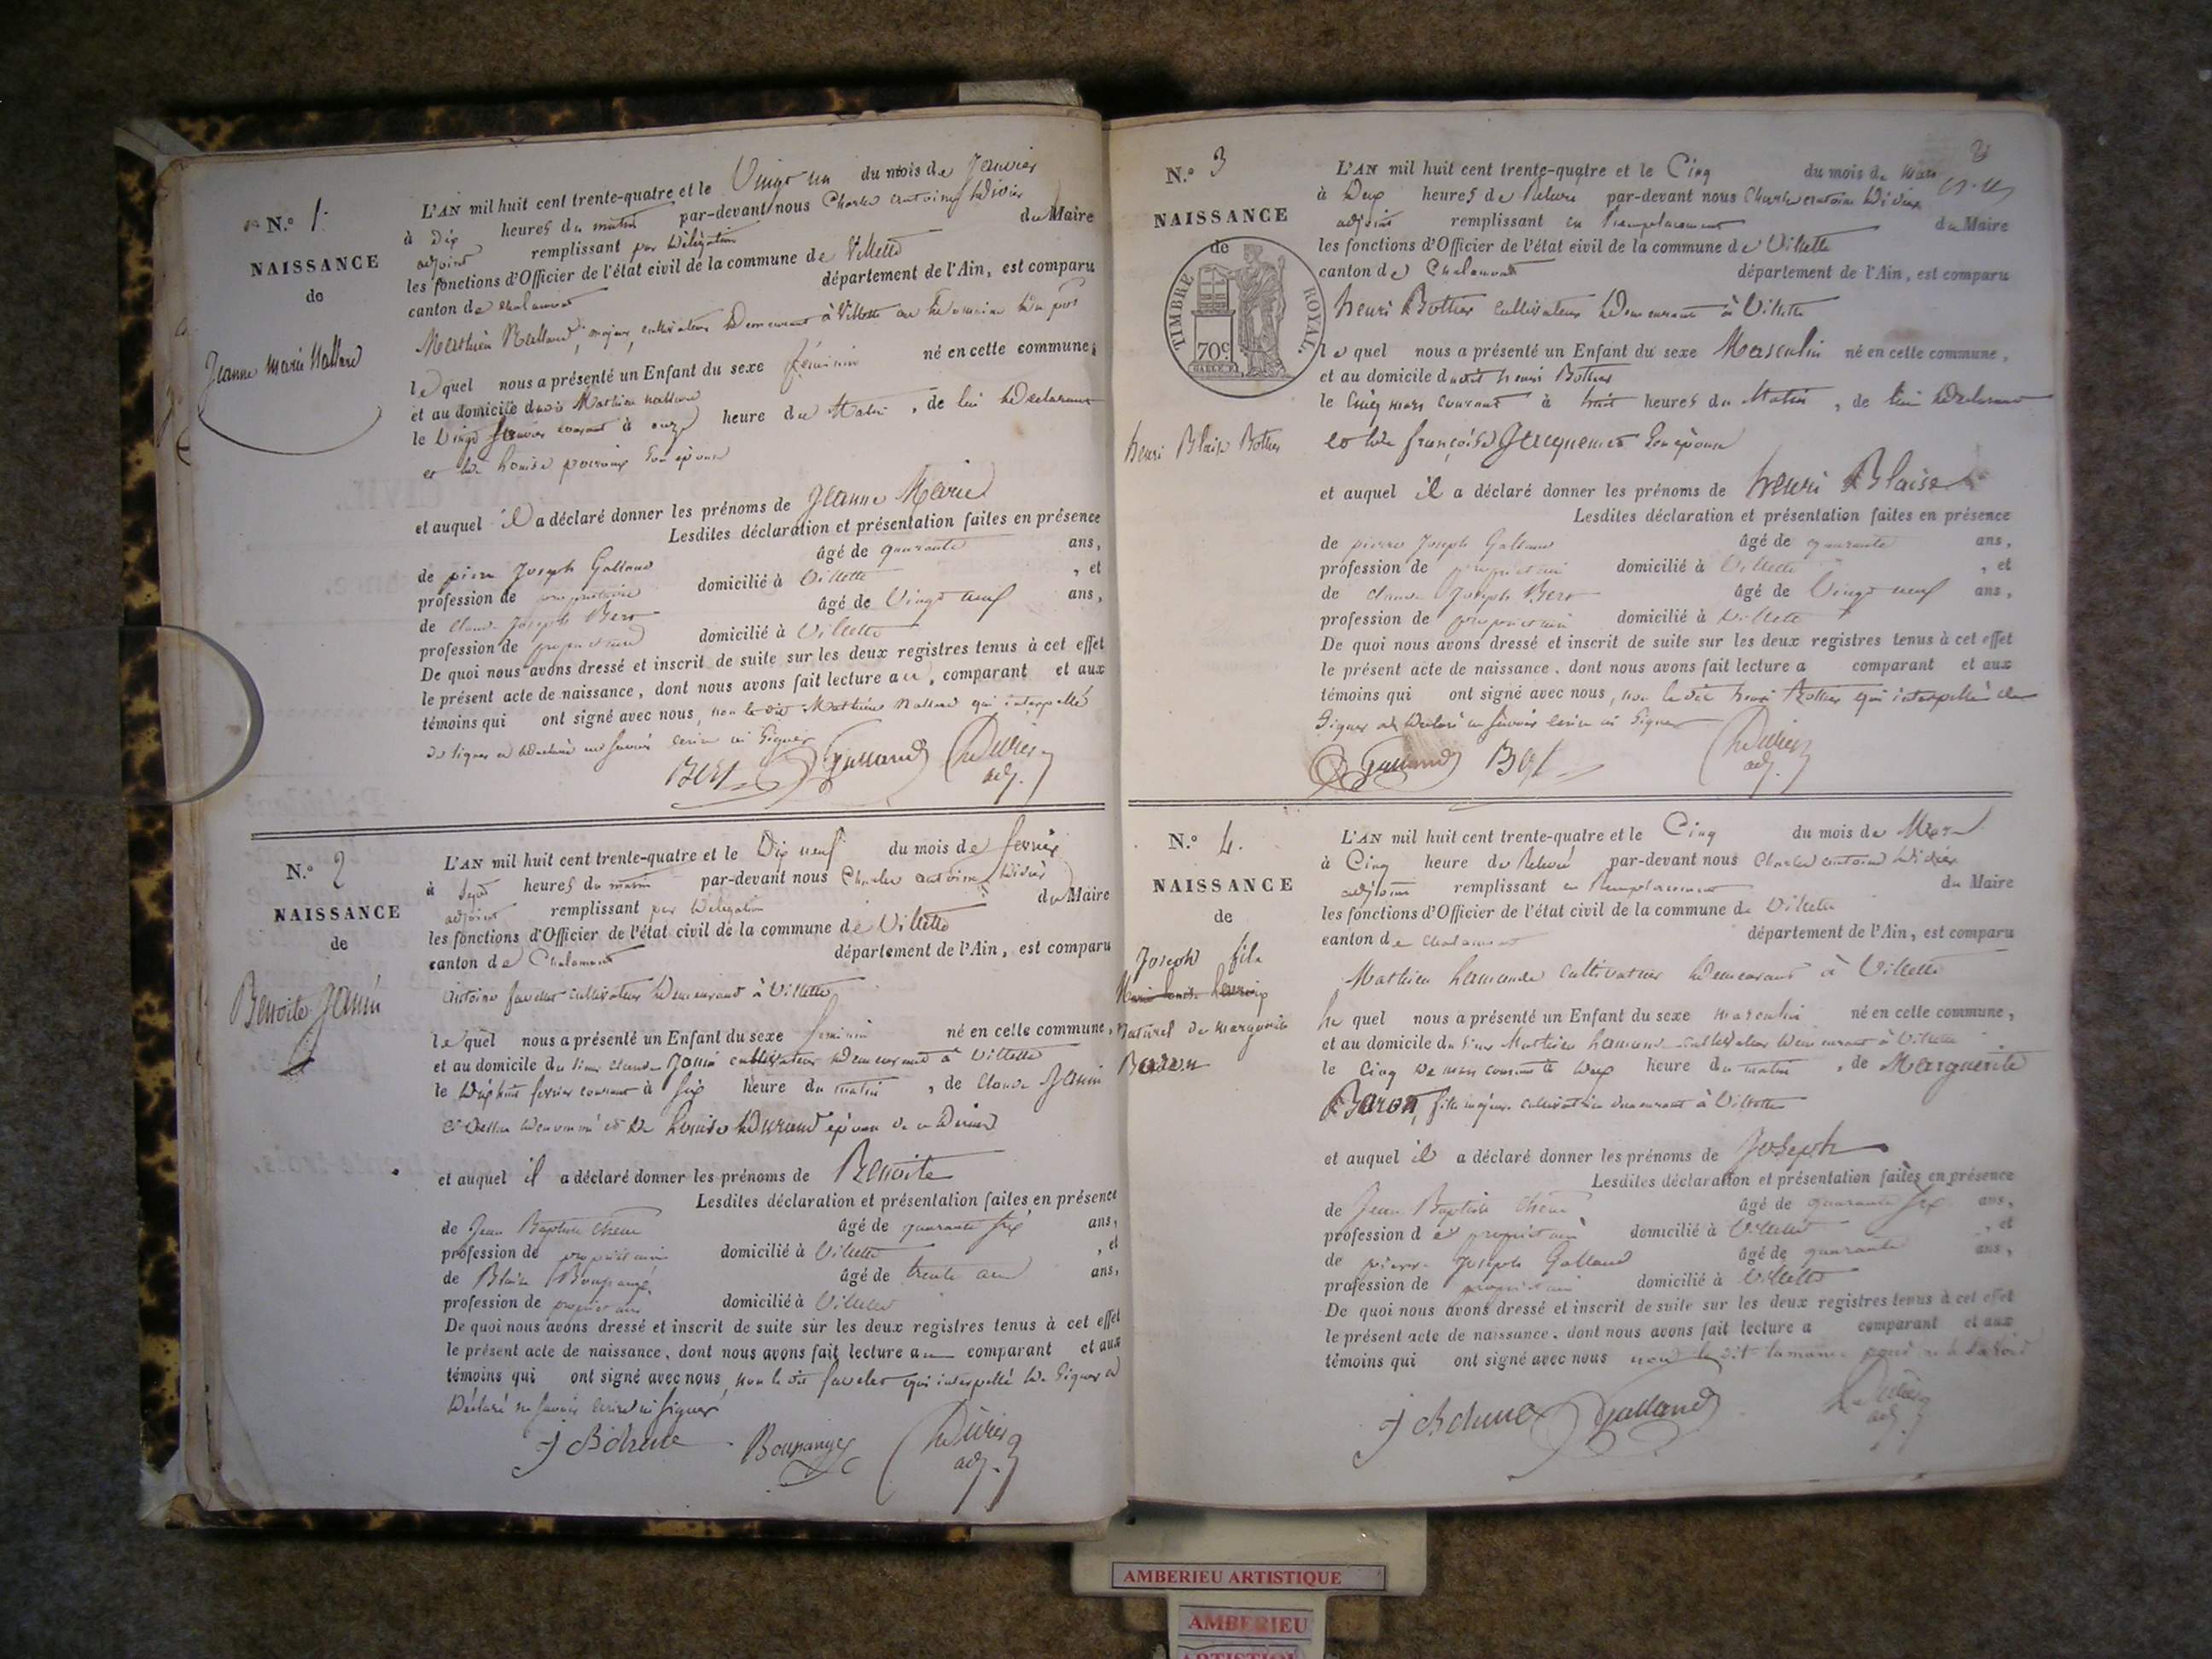 N.º 1.
NAISSANCE
de
Jeanne Marie Nallard
L'AN mil huit cent trente-quatre et le Vingt un du mois de Janvier
à dix heures du matin par-devant nous Charles Antoine
adjoint remplissant par délégation du Maire
les fonctions d'Officier de l'état civil de la commune de Villette
canton de Chalamont département de l'Ain, est comparu
Mathieu Nallard, majeur, cultivateur demeurant à Villette au domaine du
lequel nous a présenté un Enfant du sexe féminin né en cette commune,
et au domicile dudit Mathieu Nallard
le Vingt Janvier courant à onze heure du Matin, de lui déclarant
et de Louise son épouse
et auquel il a déclaré donner les prénoms de Jeanne Marie
Lesdites déclaration et présentation faites en présence
de pierre Joseph Galland âgé de quarante ans,
profession de propriétaire domicilié à Villette, et
de Claude Joseph Bert âgé de Vingt neuf ans,
profession de propriétaire domicilié à Villette
De quoi nous avons dressé et inscrit de suite sur les deux registres tenus à cet effet
le présent acte de naissance, dont nous avons fait lecture au, comparant et aux
témoins qui ont signé avec nous, non le dit Mathieu Nallard qui interpellé
de signer a déclaré ne savoir écrire ni signer
Bert Galland
adj.
N.º 2
NAISSANCE
de
Benoite Janin
L'AN mil huit cent trente-quatre et le Dix neuf du mois de février
à sept heures du matin par-devant nous Charles antoine
adjoint remplissant par délégation du Maire
les fonctions d'Officier de l'état civil de la commune de Villette
canton de Chalamont département de l'Ain, est comparu
Antoine favelet cultivateur demeurant à Villette
lequel nous a présenté un Enfant du sexe feminin né en cette commune,
et au domicile du sieur Claude Janin cultivateur demeurant à Villette
le dix huit fevrier courant à six heure du matin, de Claude Janin
et de Louise Durand épouse de ce dernier
et auquel il a déclaré donner les prénoms de Benoite
Lesdites déclaration et présentation faites en présence
de Jean Baptiste Chene âgé de quarante six ans,
profession de propriétaire domicilié à Villette, et
de Blaise âgé de trente ans,
profession de propriétaire domicilié à Villette
De quoi nous avons dressé et inscrit de suite sur les deux registres tenus à cet effet
le présent acte de naissance, dont nous avons fait lecture au comparant et aux
témoins qui ont signé avec nous, non le dit favelet qui interpellé de signer a
déclaré ne savoir écrire ni signer
adj.
N.º 3
NAISSANCE
de
TIMBRE ROYAL.
70c
henri Blaise Bothier
L'AN mil huit cent trente-quatre et le Cinq du mois de mars
à Deux heures de relevée par-devant nous Charles antoine
adjoint remplissant en remplacement du Maire
les fonctions d'Officier de l'état civil de la commune de Villette
canton de Chalamont département de l'Ain, est comparu
henri Bothier cultivateur demeurant à Villette
lequel nous a présenté un Enfant du sexe Masculin né en cette commune,
et au domicile dudit henri Bothier
le Cinq mars courant à huit heures du Matin, de lui déclarant
et de françoise Jacquemet son épouse
et auquel il a déclaré donner les prénoms de henri Blaise
Lesdites déclaration et présentation faites en présence
de pierre Joseph Galland âgé de quarante ans,
profession de propriétaire domicilié à Villette, et
de Claude Joseph Bert âgé de Vingt neuf ans,
profession de propriétaire domicilié à Villette
De quoi nous avons dressé et inscrit de suite sur les deux registres tenus à cet effet
le présent acte de naissance, dont nous avons fait lecture a comparant et aux
témoins qui ont signé avec nous, non le dit henri Bothier qui interpellé de
signer a déclaré ne savoir écrire ni signer
Galland Bert
adj.
N.º 4.
NAISSANCE
de
Joseph fils
naturel de marguerite
Baron
L'AN mil huit cent trente-quatre et le Cinq du mois de Mars
à Cinq heure de relevé par-devant nous Charles antoine
adjoint remplissant en remplacement du Maire
les fonctions d'Officier de l'état civil de la commune de Villette
canton de Chalamont département de l'Ain, est comparu
Mathieu cultivateur demeurant à Villette
lequel nous a présenté un Enfant du sexe masculin né en cette commune,
et au domicile du sieur Mathieu cultivateur demeurant à Villette
le Cinq de mars courant à deux heure du matin, de Marguerite
Baron, fille majeure cultivatrice demeurant à Villette
et auquel il a déclaré donner les prénoms de Joseph
Lesdites déclaration et présentation faites en présence
de Jean Baptiste Chene âgé de quarante six ans,
profession de propriétaire domicilié à Villette, et
de pierre Joseph Galland âgé de quarante ans,
profession de propriétaire domicilié à Villette
De quoi nous avons dressé et inscrit de suite sur les deux registres tenus à cet effet
le présent acte de naissance, dont nous avons fait lecture a comparant et aux
témoins qui ont signé avec nous non le dit
Galland
adj.
AMBERIEU ARTISTIQUE
AMBERIEU
ARTISTIQUE